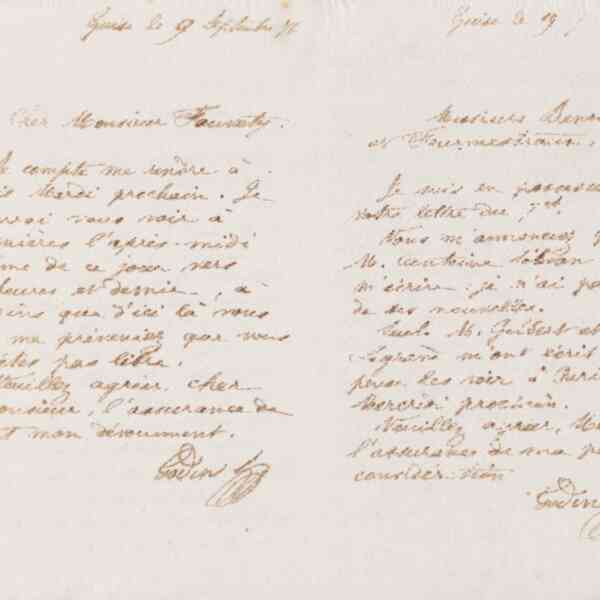 Guise le 9 Septembre 76
Cher Monsieur Fauvety.
Je compte me rendre à
is Mardi prochain. Je
rrai vous voir à
nières l'après-midi
me de ce jour vers
heures et demie, à
ins que d'ici là vous
me préveniez que vous
êtes pas libre.
Veuillez agréer, cher
onsieur, l'assurance de
t mon dévouement.
Godin
Guise le 9
Messieurs
et
Je suis en possess
votre lettre du 7 ct.
Vous m'annoncez
M. antoine
m'écrire: je n'ai pa
de ses nouvelles.
Seul. M. Guibert et
m'ont écrit
pense les voir à Paris
Mercredi prochain.
Veuillez agréer, Me
l'assurance de ma pa
considération
Godin